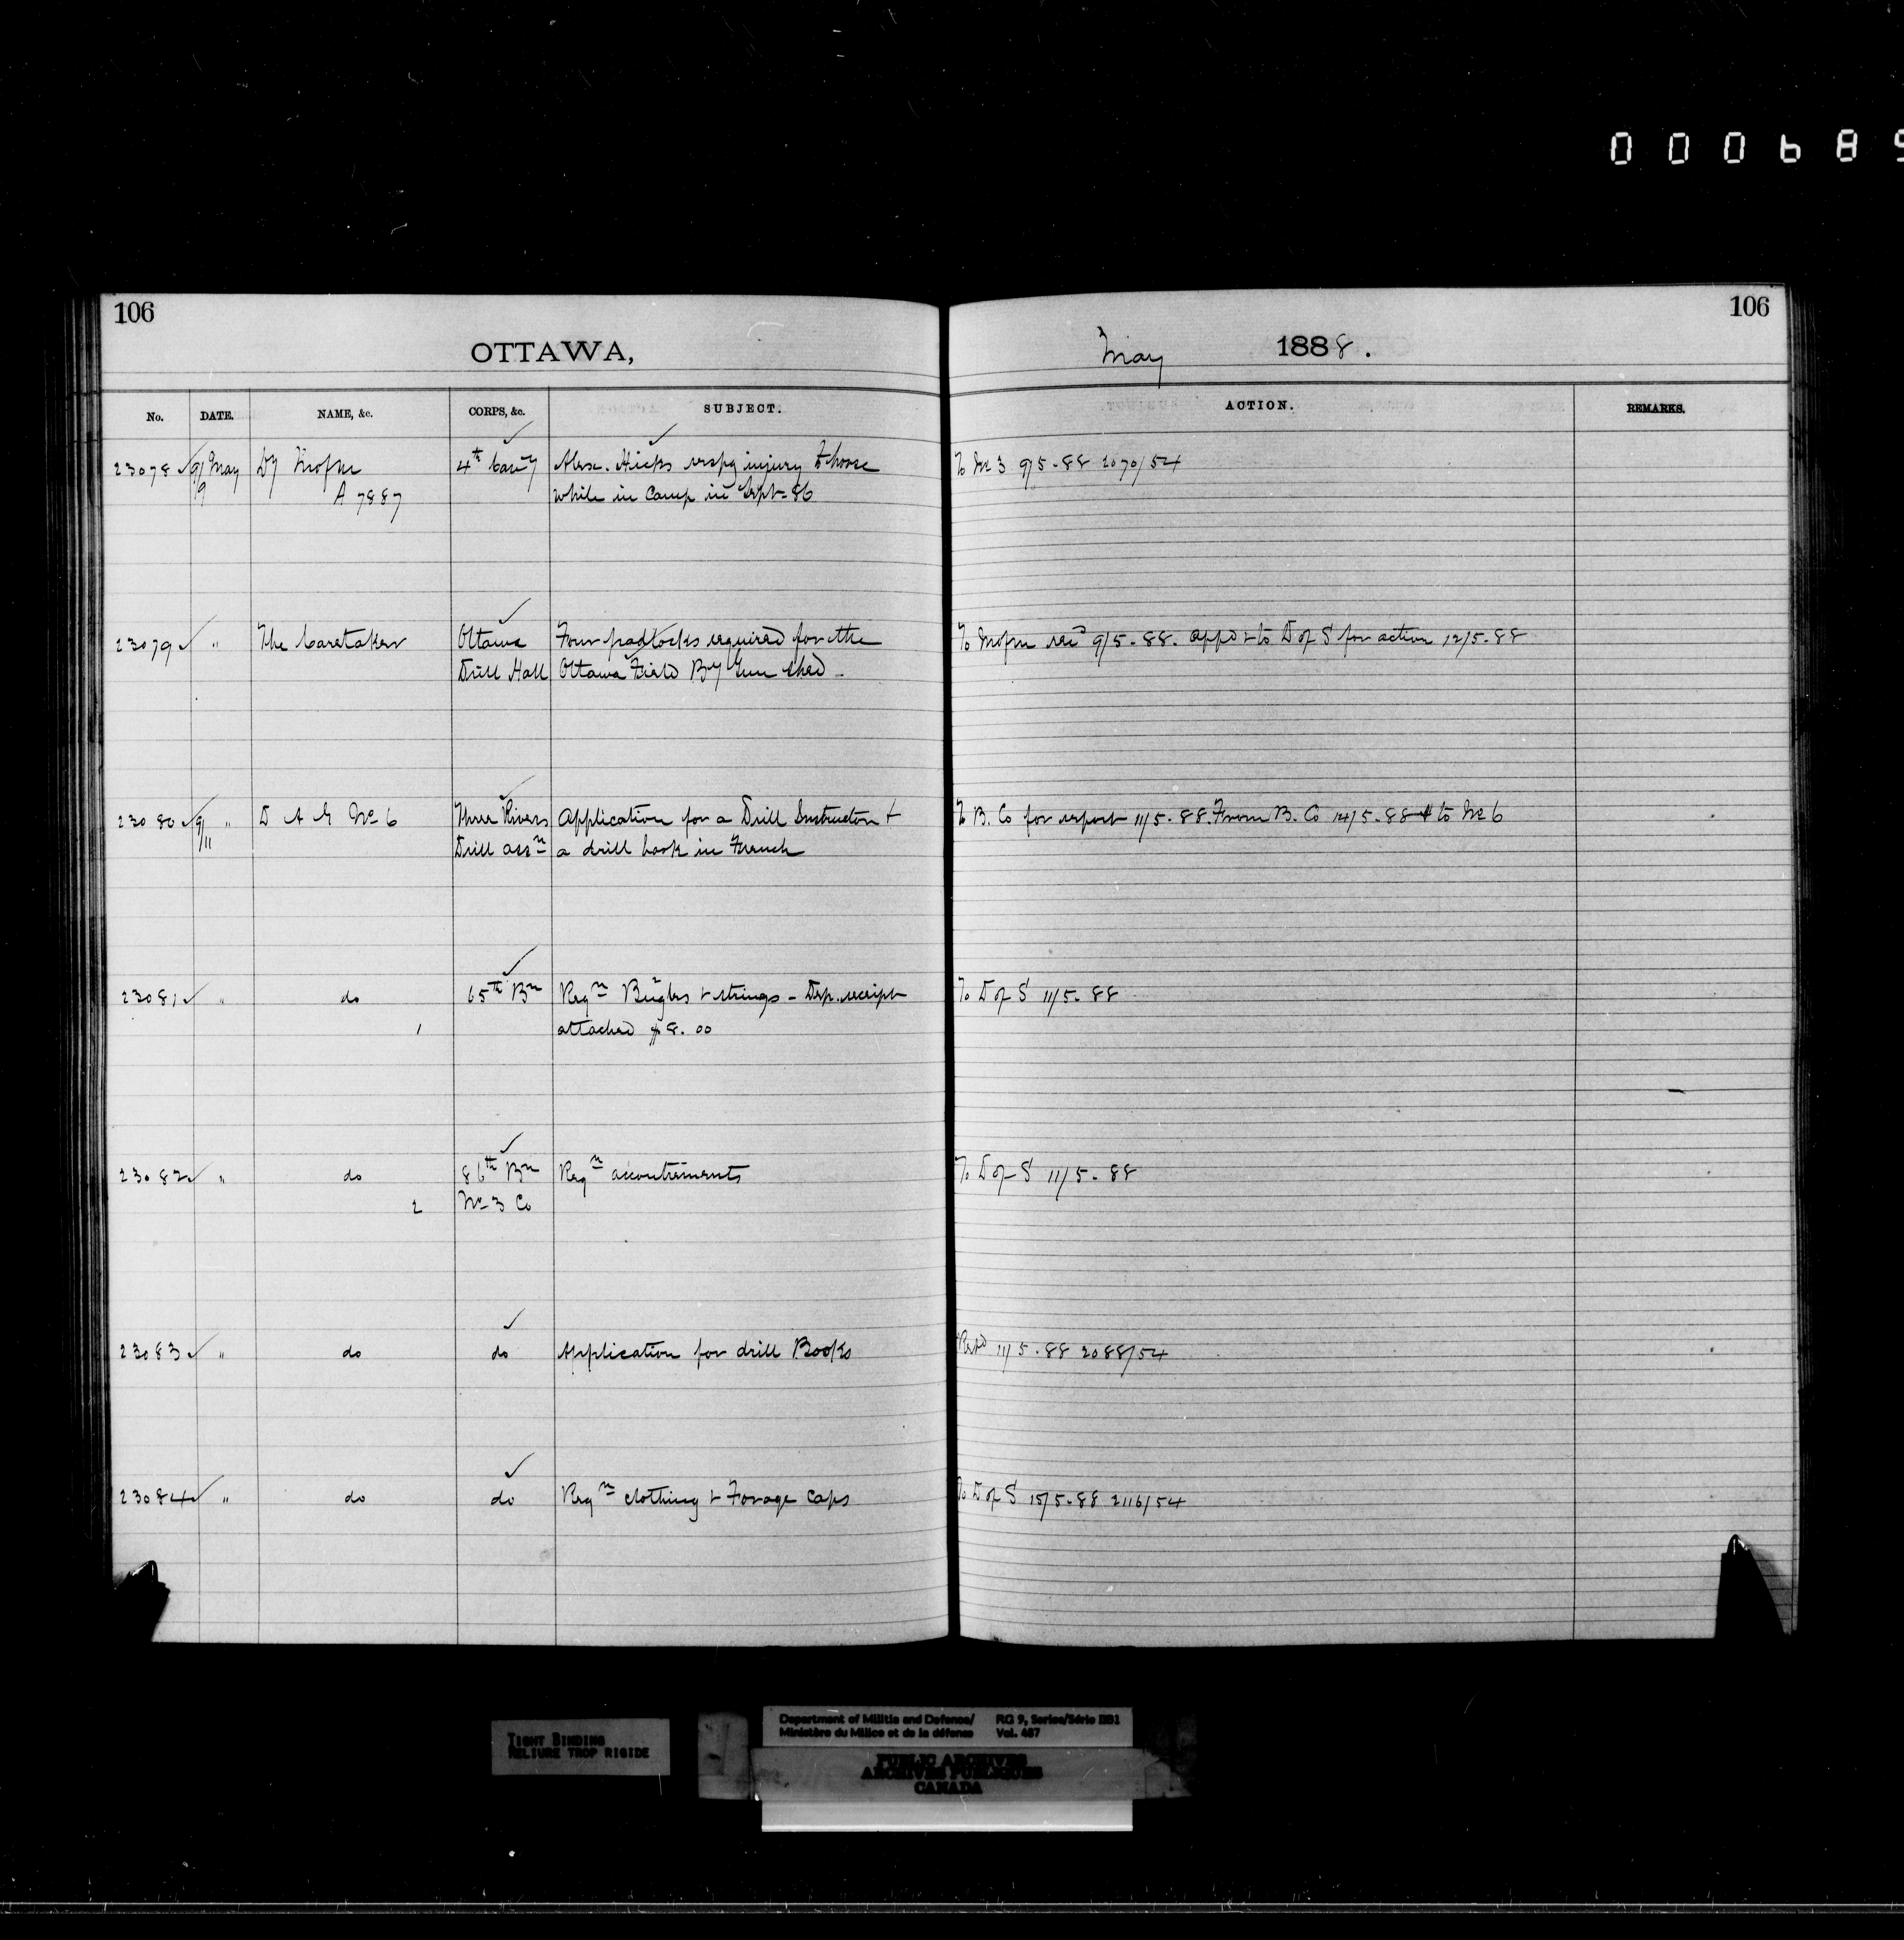 000689
106
106
OTTAWA,
May 1888.
No. DATE. NAME, &c. CORPS, &c. SUBJECT. ACTION. REMARKS.
23078 9/9 May Dy Mofm 4th Cavy Alexr. Hicks respg injury to horse To No 3 9/5-88 2070/54
A 7887 while in Camp in Sept-86
23079 " The Caretaker Ottawa Four padlocks required for the To Mofm 9/5-88. appd & to D of S for action 12/5-88
Drill Hall Ottawa Field By Gun shed -
23080 9/11 " D A G No 6 Three Rivers Application for a Drill Instructor & To B. Co for report 11/5-88. From B. Co 14/5-88 & to No 6
Drill assn a drill book in French
23081 " do 65th Bn Reqn Bugles & strings - Dep. receipt To D of S 11/5-88
1 attached $8.00
23082 " do 86th Bn Reqn accoutrements To D of S 11/5-88
2 No 3 Co
23083 " do do Application for drill Books 11/5-88 2088/54
23084 " do do Reqn clothing & Forage Caps To D of S 15/5-88 2116/54
TIGHT BINDING
RELIURE TROP RIGIDE
Department of Militia and Defence/ RG 9, Series/Série IIB1
Ministère du Milice et de la défense Vol. 487
PUBLIC ARCHIVES
ARCHIVES PUBLIQUES
CANADA